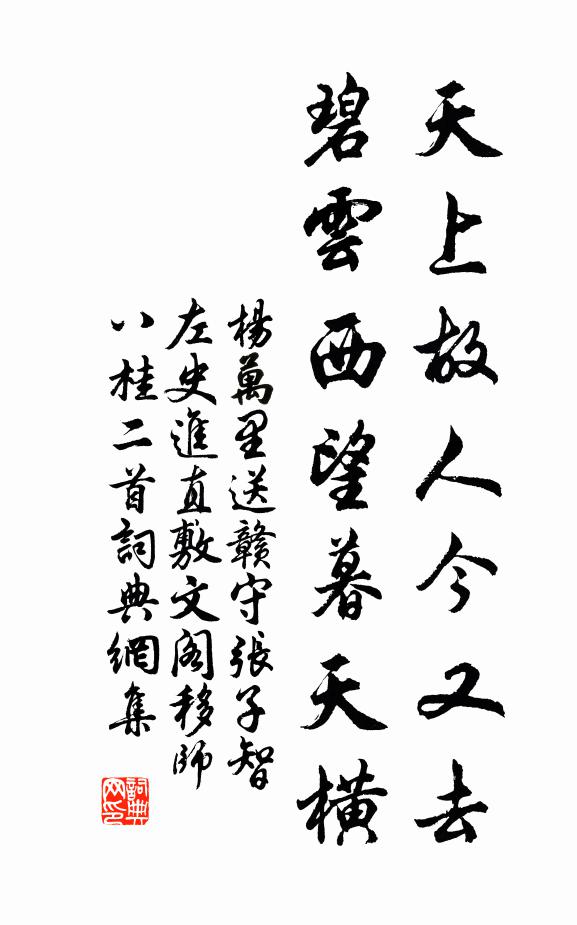 天上故人今又去
碧雲西望暮天橫
楊萬里送贛守張子智
左史進直敷文閣移師
八桂二首詞典網集
詞典网印